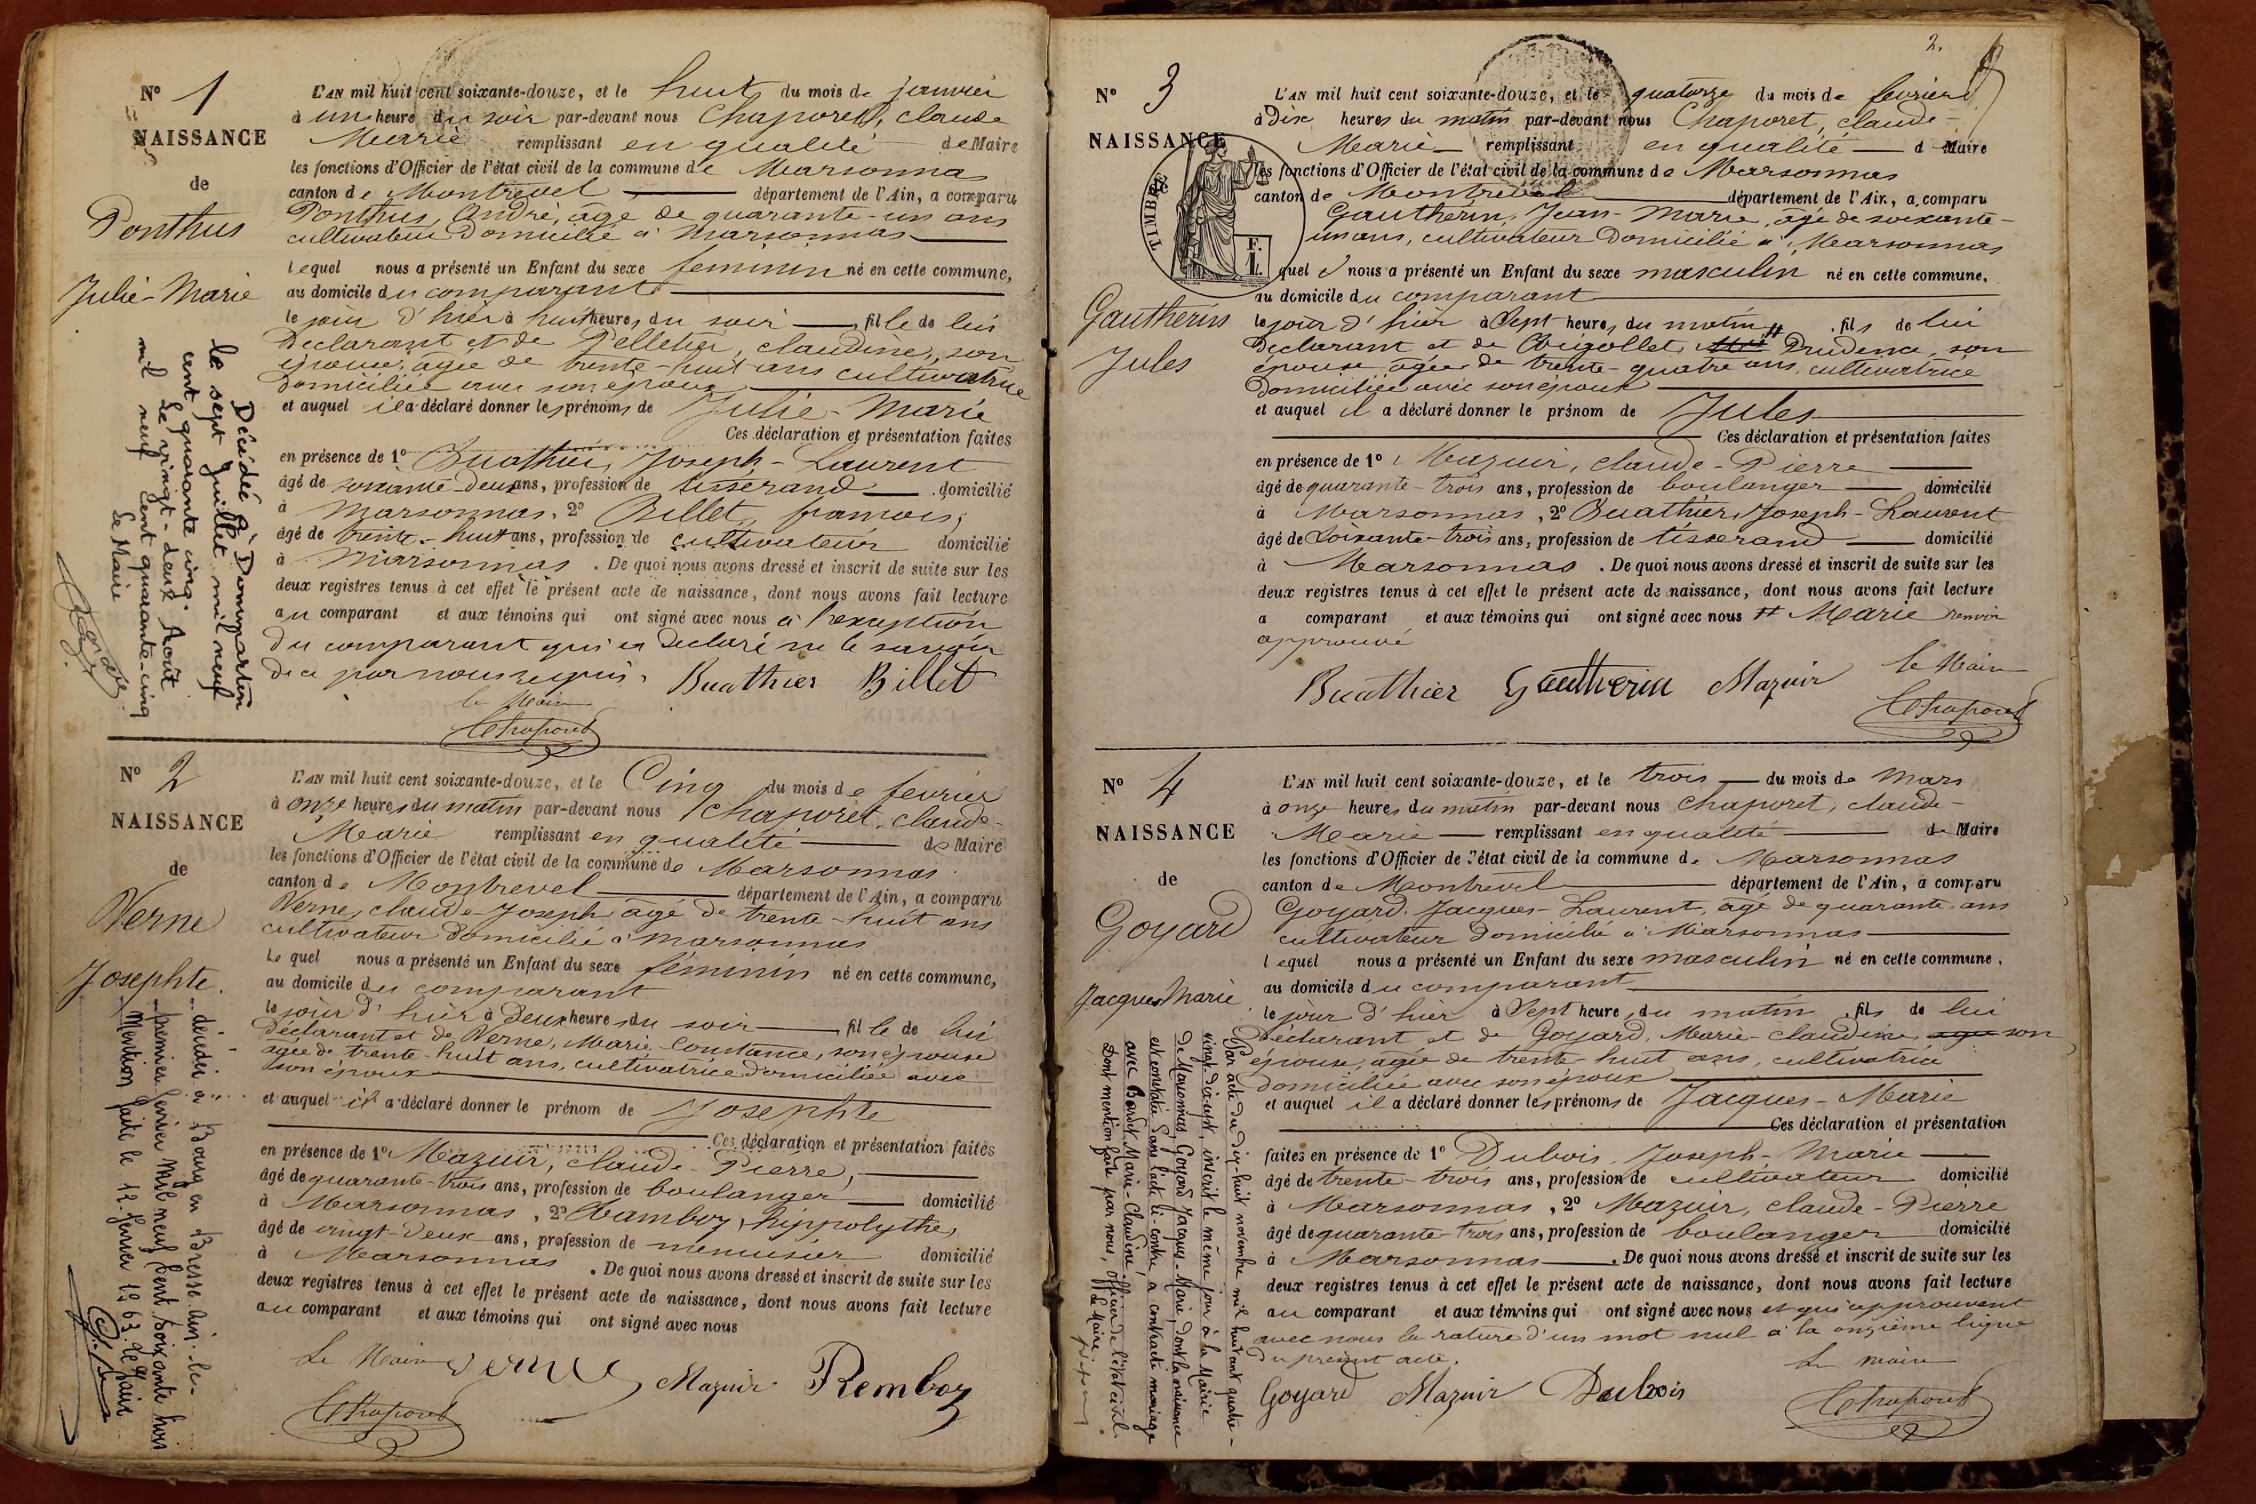 N° 1
NAISSANCE
de
Ponthus
Julie-Marie
L'AN mil huit cent soixante-douze, et le huit du mois de janvier
à une heure du soir par-devant nous Chaporet, claude
Marie remplissant en qualité de Maire
les fonctions d'Officier de l'état civil de la commune de Marsonnas
canton de Montrevel département de l'Ain, a comparu
Ponthus, André, âgé de quarante-un ans
cultivateur Domicilié à Marsonnas
lequel nous a présenté un Enfant du sexe feminin né en cette commune,
au domicile du comparant
le jour d'hier à huit heures du soir, fille de lui
Declarant et de Pelletier, claudine, son
épouse, âgée de trente-huit ans cultivatrice
domiciliée avec son époux
et auquel il a déclaré donner les prénoms de Julie-Marie
Ces déclaration et présentation faites
en présence de 1° Buathier, Joseph-Laurent
âgé de soixante-deux ans, profession de tisserand domicilié
à Marsonnas, 2° Billet, francois,
âgé de trente-huit ans, profession de cultivateur domicilié
à Marsonnas. De quoi nous avons dressé et inscrit de suite sur les
deux registres tenus à cet effet le présent acte de naissance, dont nous avons fait lecture
au comparant et aux témoins qui ont signé avec nous à l'exception
du comparant qui a Declaré ne le savoir
de ce par nous requis. Buathier Billet
le Maire
CChaporet
Décédée à Dompartin
le sept juillet mil neuf
cent quarante cinq.
Le vingt-deux Août
mil neuf cent quarante-cinq
Le Maire
N° 2
NAISSANCE
de
Verne
Josephte.
L'AN mil huit cent soixante-douze, et le Cinq du mois de fevrier
à onze heures du matin par-devant nous Chaporet, claude-
Marie remplissant en qualité de Maire
les fonctions d'Officier de l'état civil de la commune de Marsonnas
canton de Montrevel département de l'Ain, a comparu
Verne, claude-Joseph âgé de trente-huit ans
cultivateur domicilié à Marsonnas
Le quel nous a présenté un Enfant du sexe féminin né en cette commune,
au domicile du comparant
le jour d'hier à Deux heures du soir fille de lui
déclarant et de Verne, Marie Constance, son épouse
âgée de trente-huit ans, cultivatrice domiciliée avec
son époux
et auquel il a déclaré donner le prénom de Josephte
Ces déclaration et présentation faites
en présence de 1° Mazuir, claude-Pierre,
âgé de quarante-trois ans, profession de boulanger domicilié
à Marsonnas, 2° Ramboz, hippolythe,
âgé de vingt-deux ans, profession de menuisier domicilié
à Marsonnas. De quoi nous avons dressé et inscrit de suite sur les
deux registres tenus à cet effet le présent acte de naissance, dont nous avons fait lecture
au comparant et aux témoins qui ont signé avec nous
Le Maire Verne Mazuir Remboz
CChaporet
décédée à Bourg en Bresse Ain le
premier fevrier mil neuf cent soixante trois
Mention faite le 12 fevrier 1963. Le Maire
2.
N° 3
NAISSANCE
TIMBRE
F.
L.
Gautherin
Jules
L'AN mil huit cent soixante-douze, et le quatorze du mois de fevrier
à Dix heures du matin par-devant nous Chaporet, claude-
Marie remplissant en qualité d Maire
les fonctions d'Officier de l'état civil de la commune de Marsonnas
canton de Montrevel département de l'Ain, a comparu
Gautherin, Jean-Marie, âgé de soixante-
un ans, cultivateur Domicilié à Marsonnas
quel nous a présenté un Enfant du sexe masculin né en cette commune,
au domicile du comparant
le jour d'hier à Sept heures du matin, fils de lui
Declarant et de Prudence, son
épouse âgée de trente-quatre ans, cultivatrice
Domiciliée avec son époux
et auquel il a déclaré donner le prénom de Jules
Ces déclaration et présentation faites
en présence de 1° Mazuir, claude-Pierre
âgé de quarante-trois ans, profession de boulanger domicilié
à Marsonnas, 2° Buathier, Joseph-Laurent
âgé de Soixante-trois ans, profession de tisserand domicilié
à Marsonnas. De quoi nous avons dressé et inscrit de suite sur les
deux registres tenus à cet effet le présent acte de naissance, dont nous avons fait lecture
a comparant et aux témoins qui ont signé avec nous # Marie renvoi
approuvé
Buathier Gautherin Mazuir le Maire
CChaporet
N° 4
NAISSANCE
de
Goyard
Jacques Marie
L'AN mil huit cent soixante-douze, et le trois du mois de Mars
à onze heures du matin par-devant nous Chaporet, claude-
Marie remplissant en qualité de Maire
les fonctions d'Officier de l'état civil de la commune de Marsonnas
canton de Montrevel département de l'Ain, a comparu
Goyard, Jacques-Laurent, âgé de quarante ans
cultivateur Domicilié à Marsonnas
lequel nous a présenté un Enfant du sexe masculin né en cette commune,
au domicile du comparant
le jour d'hier à Sept heure du matin fils de lui
Déclarant et de Goyard, Marie-claudine, agée son
épouse, agée de trente-huit ans, cultivatrice
domiciliée avec son époux
et auquel il a déclaré donner les prénoms de Jacques-Marie
Ces déclaration et présentation
faites en présence de 1° Dubois, Joseph-Marie
âgé de trente-trois ans, profession de cultivateur domicilié
à Marsonnas, 2° Mazuir, claude-Pierre
âgé de quarante-trois ans, profession de boulanger domicilié
à Marsonnas. De quoi nous avons dressé et inscrit de suite sur les
deux registres tenus à cet effet le présent acte de naissance, dont nous avons fait lecture
au comparant et aux témoins qui ont signé avec nous et qui approuvent
avec nous la rature d'un mot nul à la onzième ligne
du présent acte.
le maire
Goyard Mazuir Dubois
CChaporet
Par acte du dix-huit novembre mil huit cent quatre-
vingt-dix-sept, inscrit le même jour à la Mairie
de Marsonnas, Goyard Jacques-Marie, dont la naissance
est constatée dans l'acte ci-contre, a contracté mariage
avec Marie-Claudine,
Dont mention faite par nous, officier de l'état civil
Le Maire